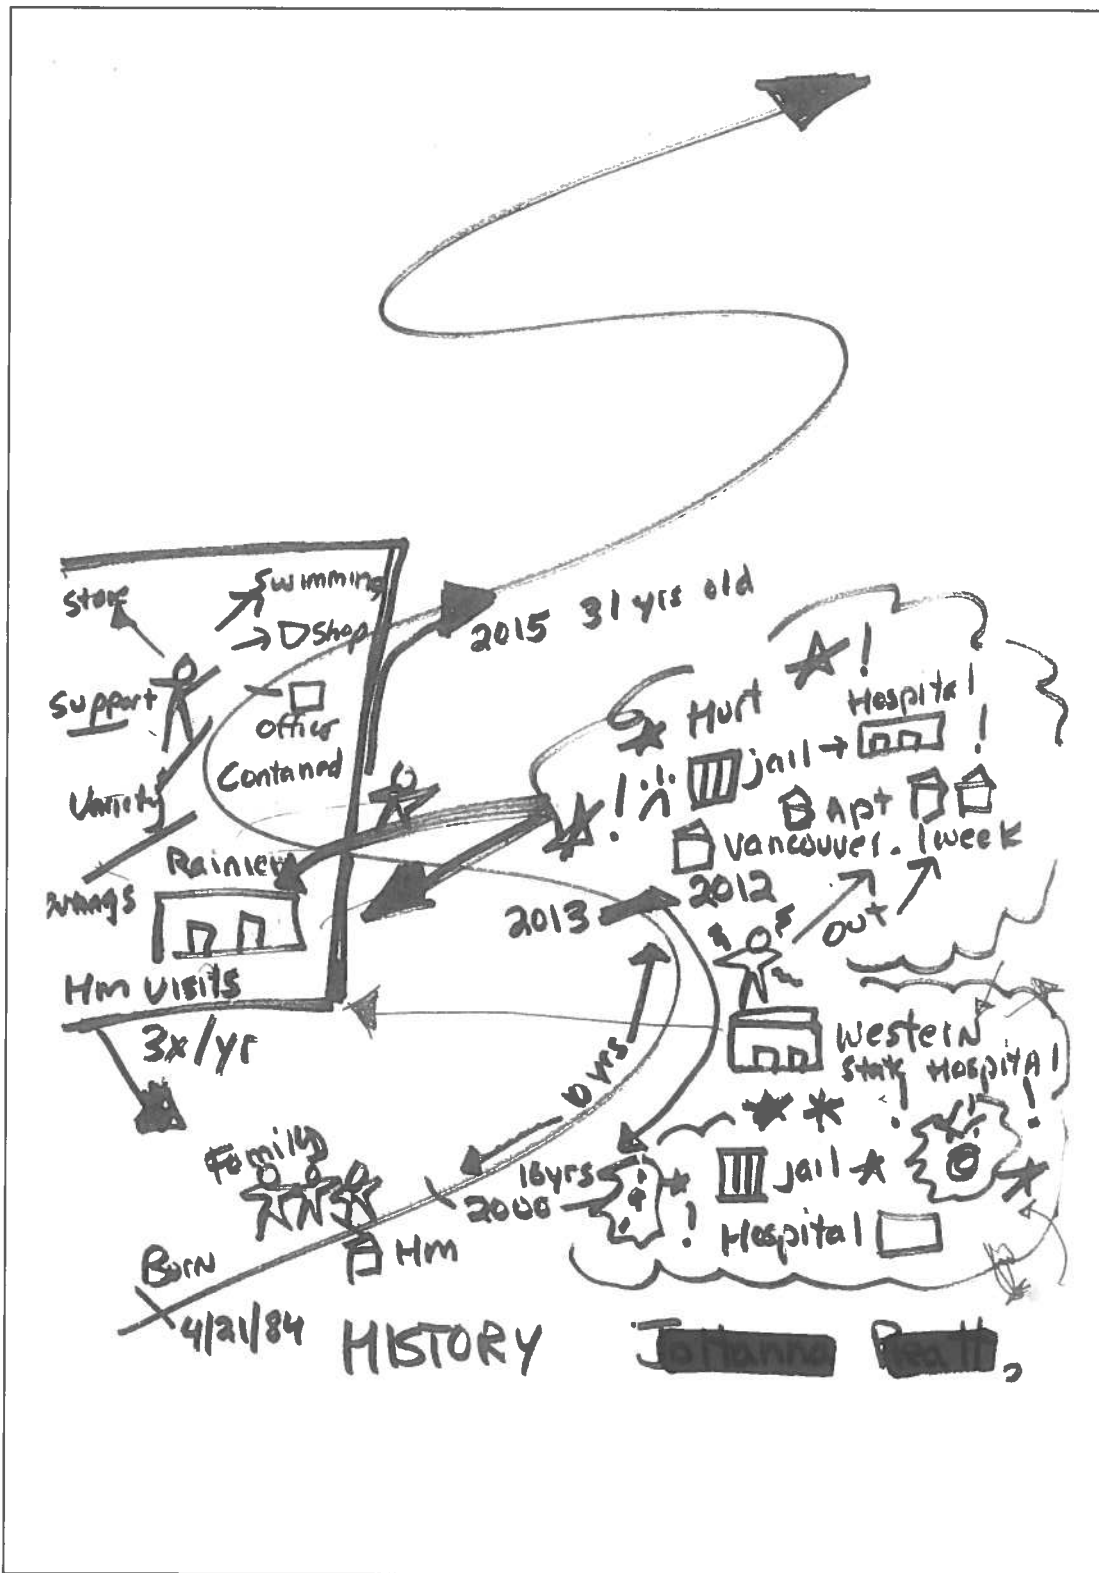 Store
Swimming
Shop
Support
office
Contaned
Variety
Rainier
Hm visits
3x/yr
2015 31 yrs old
Hurt
!
Hospital
jail
!
!
Apt
Vancouver. 1 week
2012
2013
out
Western
State Hospital
!
!
10 yrs
Family
16yrs
2000
!
jail
Hospital
Hm
Born
4/21/84
HISTORY